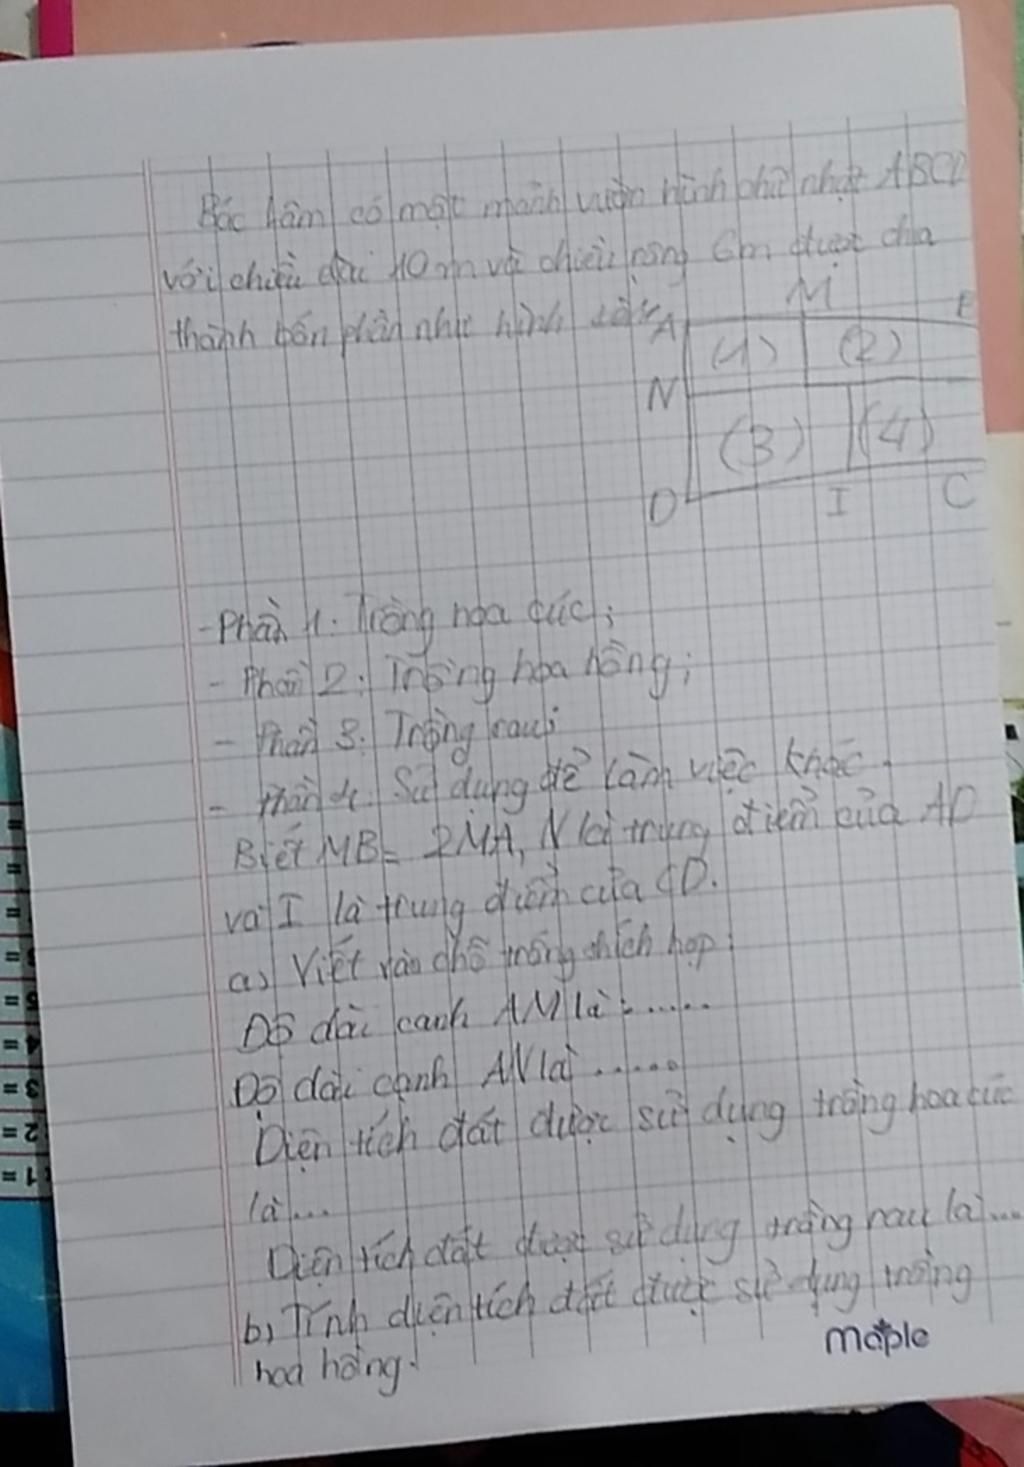 Bác Lâm có một mảnh vườn hình chữ nhật ABCD
với chiều dài 10 m và chiều rộng 6m được chia
thành bốn phần như hình
M
A
(1) (2)
N
(3) (4)
D I C
- Phần 1: Trồng hoa cúc;
- Phần 2: Trồng hoa hồng;
- Phần 3: Trồng rau;
- Phần 4: Sử dụng để làm việc khác.
Biết MB = 2MA, N là trung điểm của AD
và I là trung điểm của CD.
a) Viết vào chỗ trống thích hợp:
Độ dài cạnh AM là:.....
Độ dài cạnh AN là .....
Diện tích đất được sử dụng trồng hoa cúc
là...
Diện tích đất được sử dụng trồng rau là...
b) Tính diện tích đất được sử dụng trồng
hoa hồng.
maple
1 =
2 =
3 =
4 =
5 =